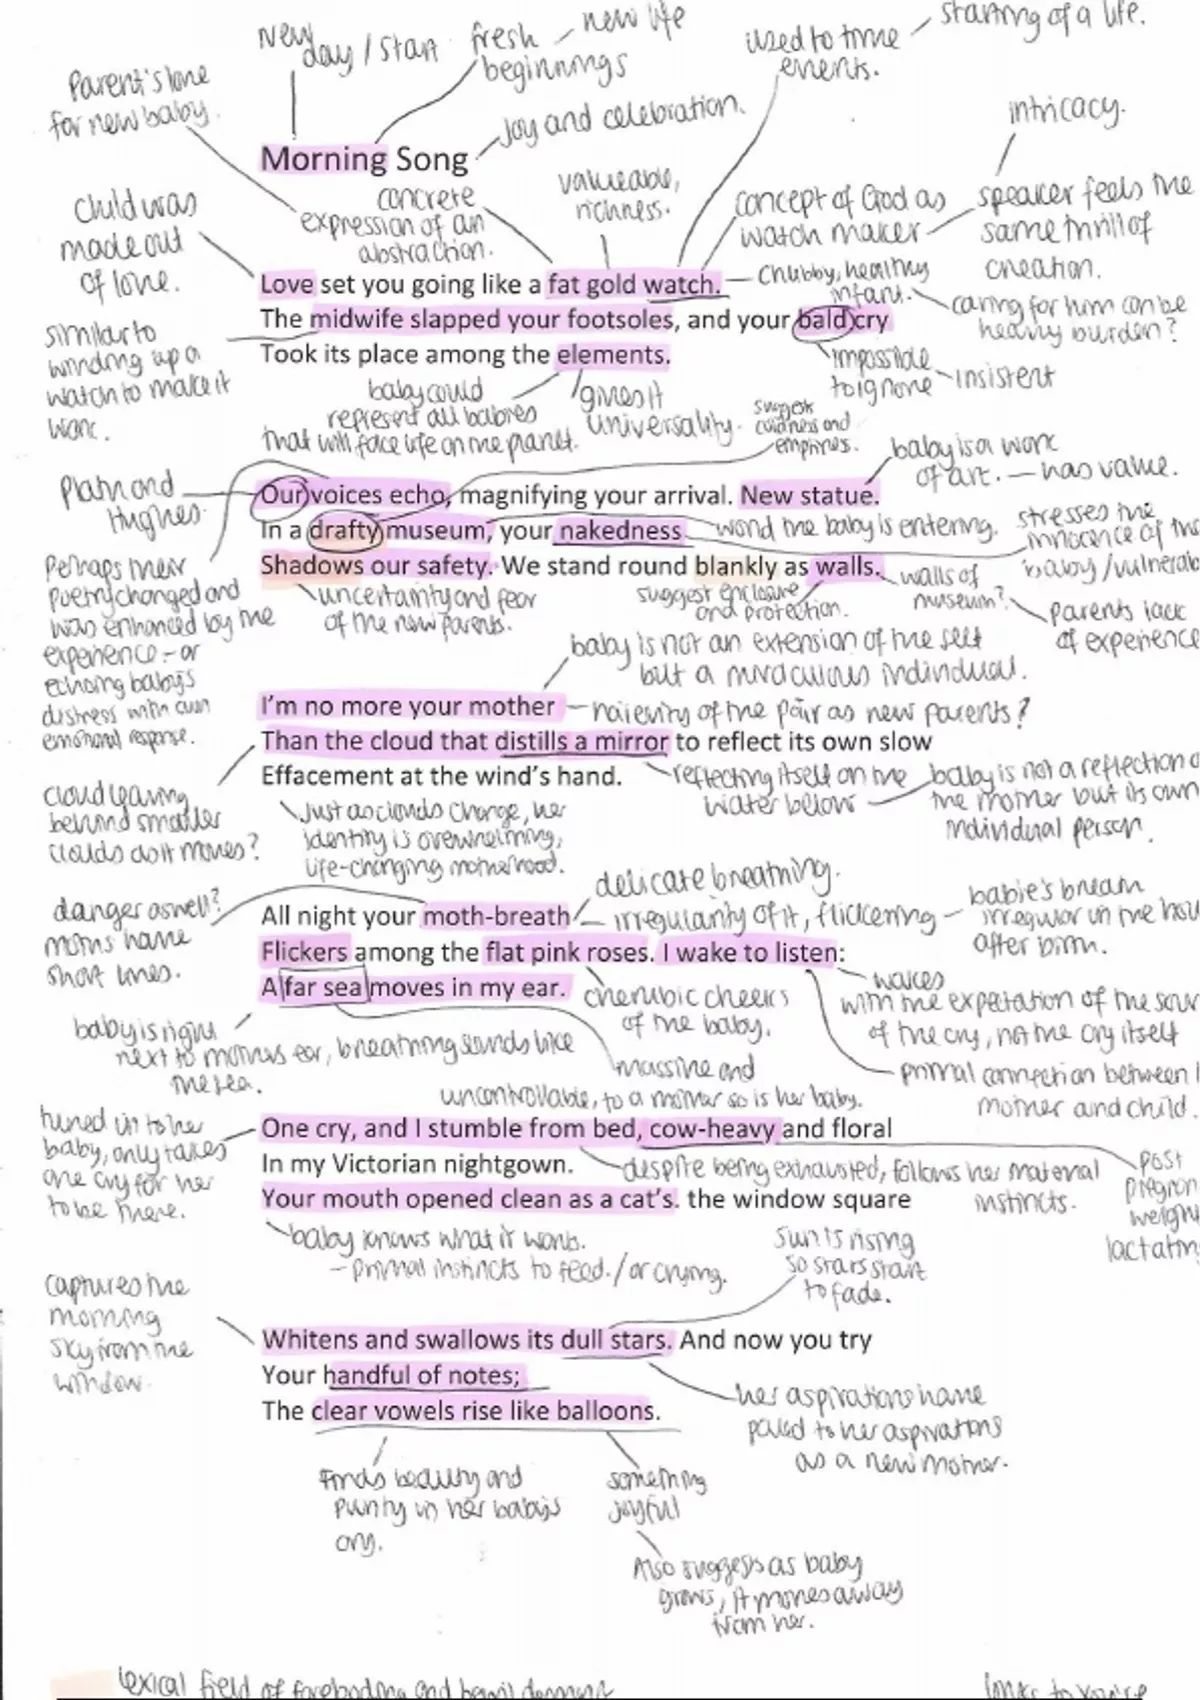 New day / start
fresh beginnings
new life
used to time events.
starting of a life.
Parent's love
for new baby.
joy and celebration.
intricacy.
Morning Song
concrete
expression of an
abstraction.
valueable,
richness.
concept of God as
watch maker
speaker feels the
same thrill of
creation.
Child was
made out
of love.
chubby, healthy
infant.
caring for him can be
heavy burden?
Love set you going like a fat gold watch.
The midwife slapped your footsoles, and your bald cry
Took its place among the elements.
similar to
winding up a
watch to make it
work.
impossible
to ignore
insistent
baby could
represent all babies
that will face life on the planet.
gives it
universality.
suggest
coldness and
emptiness.
baby is a work
of art. — has value.
Plath and
Hughes.
Our voices echo, magnifying your arrival. New statue.
In a drafty museum, your nakedness
Shadows our safety. We stand round blankly as walls.
world the baby is entering.
stresses the
innocence of the
baby/vulnerab
Perhaps their
poetry changed and
was enhanced by the
experience – or
echoing baby's
distress with own
emotional response.
uncertainty and fear
of the new parents.
suggest enclosure
and protection.
walls of
museum?
parents lack
of experience
baby is not an extension of the self
but a miraculous individual.
I'm no more your mother
Than the cloud that distills a mirror to reflect its own slow
Effacement at the wind's hand.
naievity of the pair as new parents?
reflecting itself on the
water below
baby is not a reflection o
the mother but its own
individual person.
cloud leaving
behind smaller
clouds as it moves?
Just as clouds change, her
identity is overwhelming,
life-changing motherhood.
danger aswell?
moths have
short lives.
delicate breathing.
irregularity of it, flickering
babie's breath
irregular in the hou
after birth.
All night your moth-breath
Flickers among the flat pink roses. I wake to listen:
A far sea moves in my ear.
cherubic cheeks
of the baby.
wakes
with the expectation of the sou
of the cry, not the cry itself
baby is right
next to mothers ear, breathing sounds like
the sea.
massive and
uncontrollable, to a mother so is her baby.
primal connection between
mother and child.
tuned in to her
baby, only takes
one cry for her
to be there.
One cry, and I stumble from bed, cow-heavy and floral
In my Victorian nightgown.
Your mouth opened clean as a cat's. the window square
despite being exhausted, follows her maternal
instincts.
post
pregnan
weight
lactatin
baby knows what it wants.
– primal instincts to feed. / or crying.
sun is rising
so stars start
to fade.
captures the
morning
sky from the
window.
Whitens and swallows its dull stars. And now you try
Your handful of notes;
The clear vowels rise like balloons.
her aspirations have
paled to her aspirations
as a new mother.
Finds beauty and
purity in her baby's
cry.
something
joyful
Also suggests as baby
grows, it moves away
from her.
lexical field of foreboding and
links to